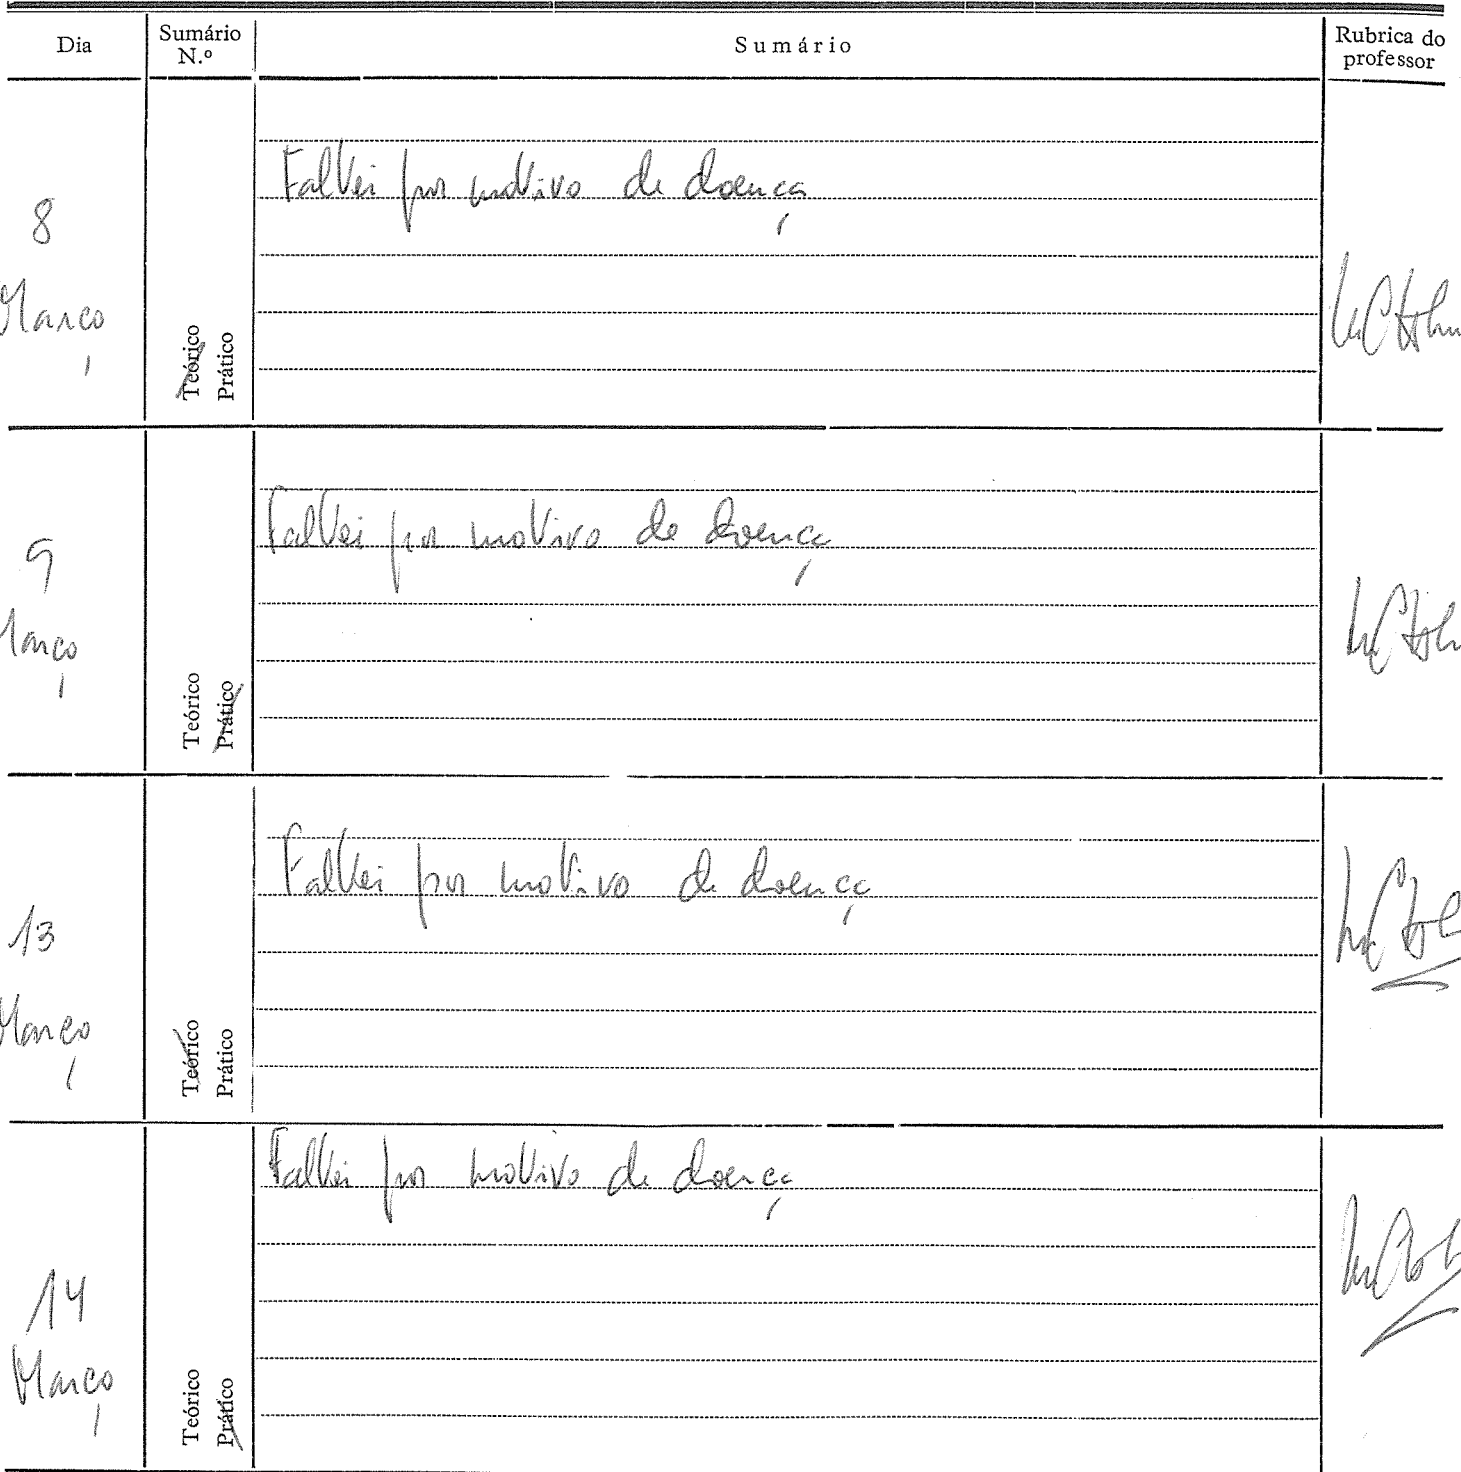 Dia
Sumário N.º
Sumário
Rubrica do professor
8
Março
Teórico
Prático
Faltei por motivo de doença
9
Março
Teórico
Prático
Faltei por motivo de doença
13
Março
Teórico
Prático
Faltei por motivo de doença
14
Março
Teórico
Prático
Faltei por motivo de doença